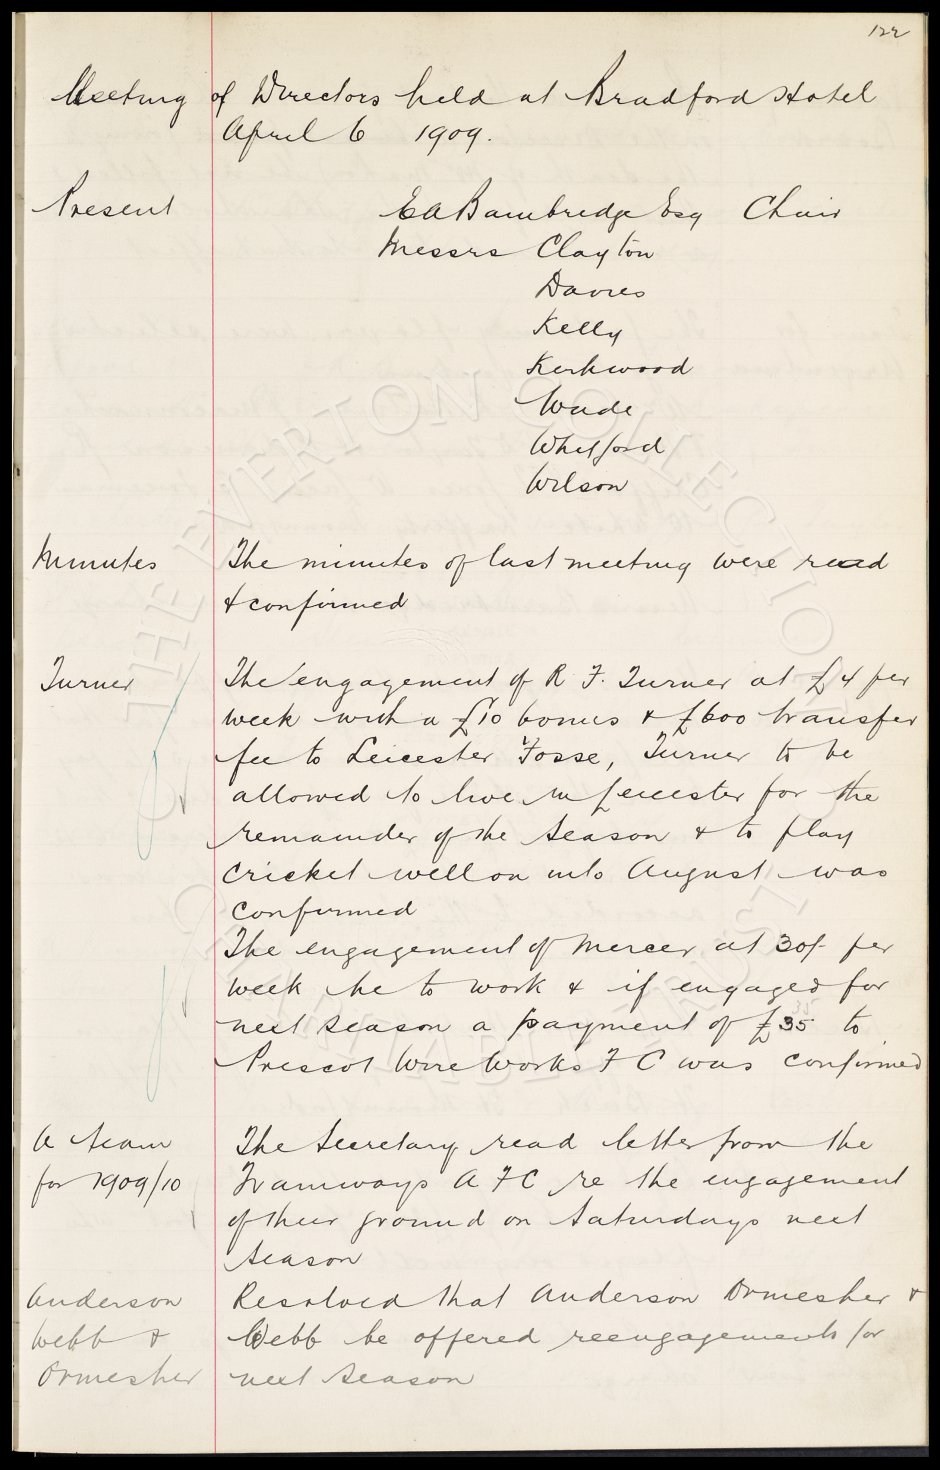 122
Meeting of Directors held at Bradford Hotel
April 6 1909.
Present E A Bainbridge Esq Chair
Messrs Clayton
Davies
Kelly
Kirkwood
Wade
Whitford
Wilson
Minutes The minutes of last meeting were read
& confirmed
Turner The engagement of R F. Turner at £4 per
week with a £10 bonus & £600 transfer
fee to Leicester Fosse, Turner to be
allowed to live in Leicester for the
remainder of the season & to play
cricket well on into August was
confirmed
The engagement of Mercer at 30/- per
week he to work & if engaged for
next season a payment of £35 to
Prescot Wire Works F C was confirmed
A team The Secretary read letter from the
for 1909/10 Tramways A F C re the engagement
of their ground on Saturdays next
season
Anderson Resolved that Anderson Ormesher &
Webb & Webb be offered reengagements for
Ormesher next season
THE EVERTON COLLECTION